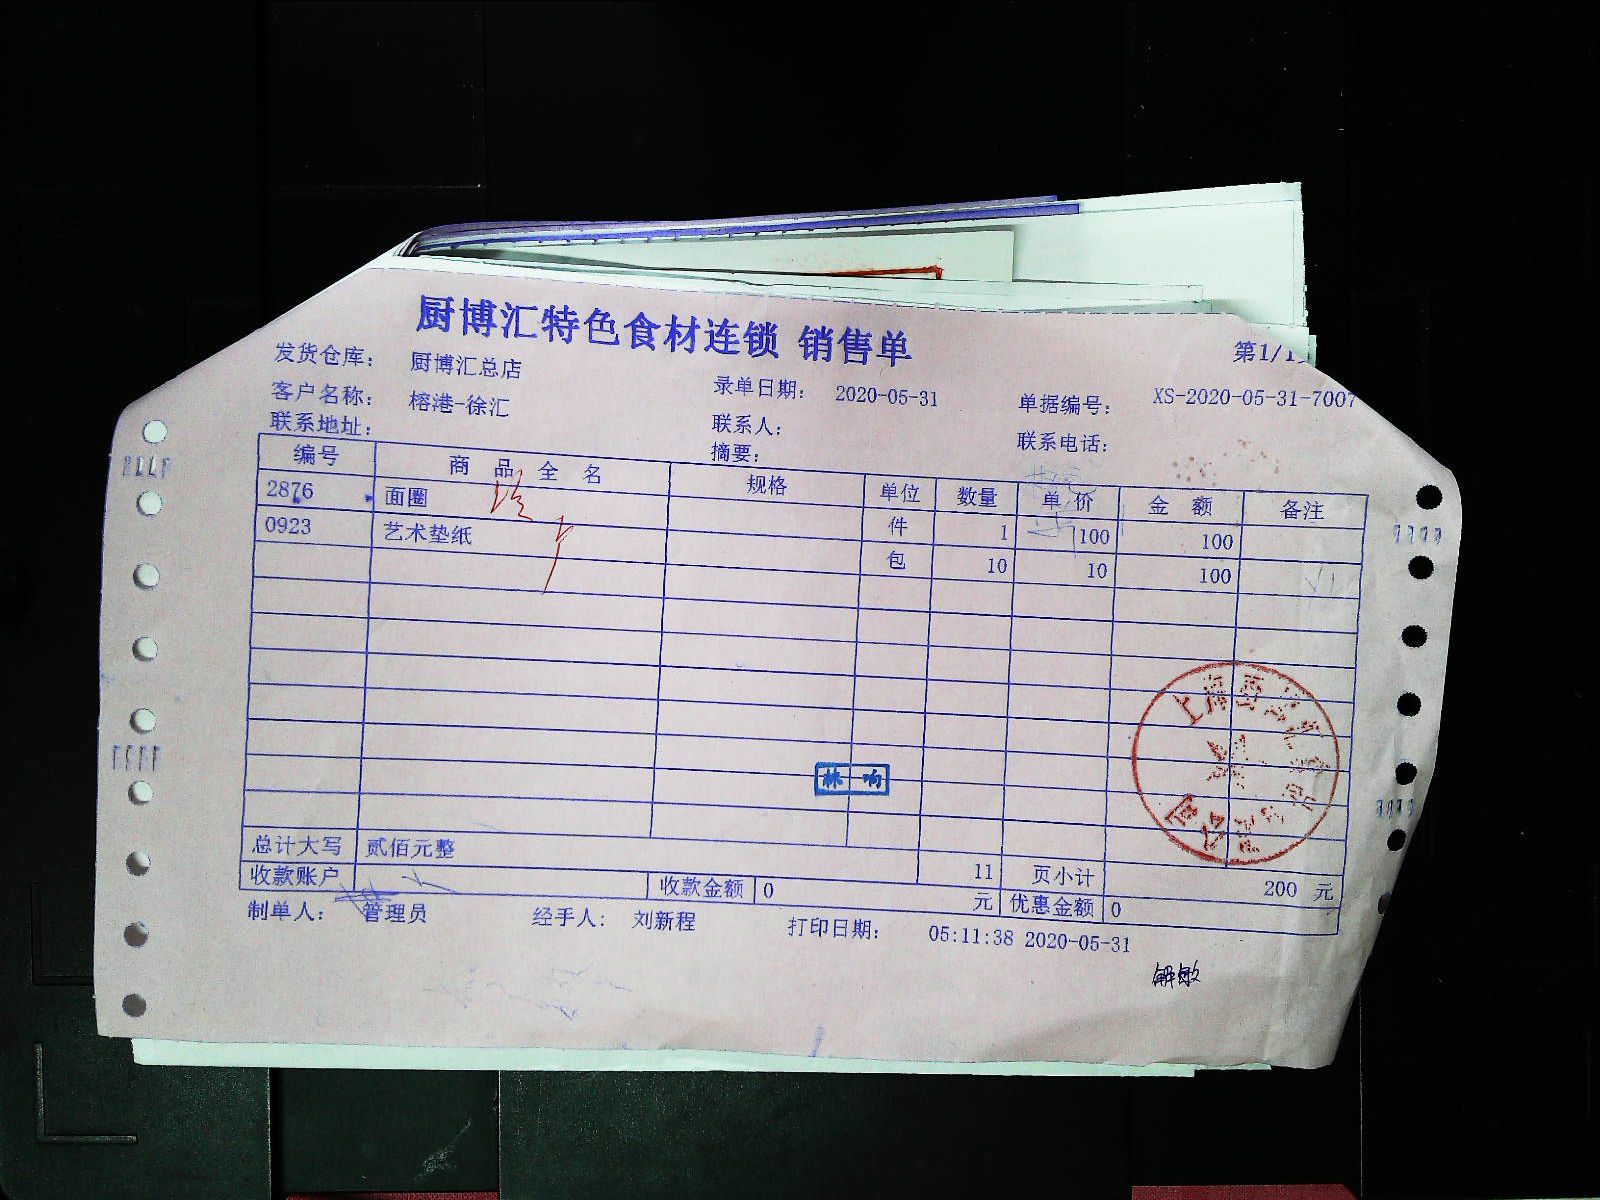 厨博汇特色食材连锁 销售单
第1/1
发货仓库： 厨博汇总店
录单日期： 2020-05-31
单据编号： XS-2020-05-31-7007
客户名称： 榕港-徐汇
联系人：
联系电话：
联系地址：
摘要：
编号 商品全名 规格 单位 数量 单价 金额 备注
2876 面圈 件 1 100 100
0923 艺术垫纸 包 10 10 100
林响
总计大写 贰佰元整 11 页小计 200 元
收款账户 收款金额 0 元 优惠金额 0
制单人： 管理员 经手人： 刘新程 打印日期： 05:11:38 2020-05-31
解敏